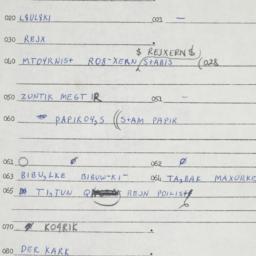 020 LSULSKI 021 –
030 REJX
$ REJXERN $
040 MTOYRNIST ROB-XERN / STABIS (028
050 ZUNTIK MEGT IR 051 –
060 PAPIKO4,S ((STAM PAPIK
061 Ø 062 Ø
063 BIBU,LKE 064 TA,BAK MAXORKE
065 TI,TUN REJN POILIST
070 Ø KO4RIK
080 DER KARK